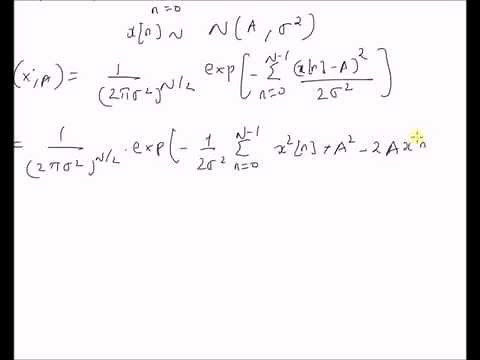 n=0
x[n] ~ N(A, σ²)
(x;A) = 1/(2πσ²)^N/2 exp[-∑_{n=0}^{N-1} (x[n]-A)²/2σ²]
= 1/(2πσ²)^N/2 . exp[-1/2σ² ∑_{n=0}^{N-1} x²[n] + A² - 2Ax n